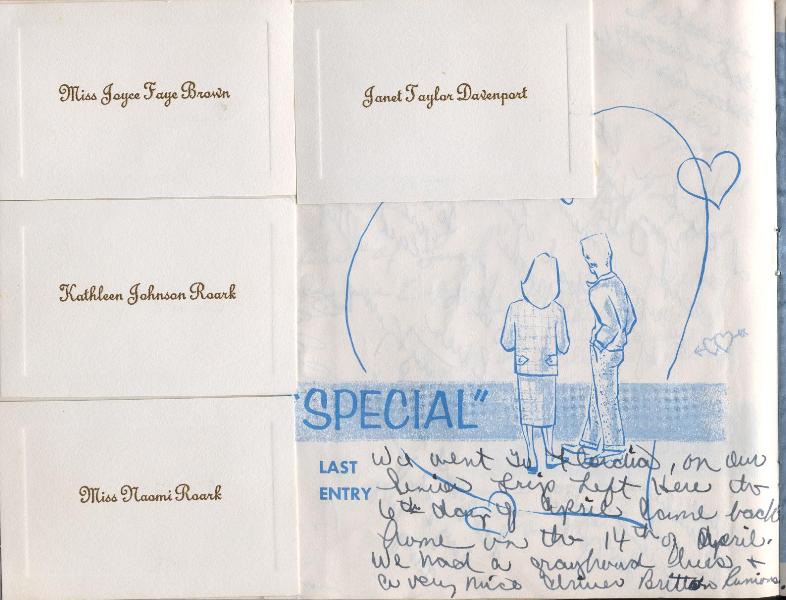 Miss Joyce Faye Brown
Janet Taylor Davenport
Kathleen Johnson Roark
Miss Naomi Roark
"SPECIAL"
LAST
ENTRY
We went to Floridia, on our
Senior trip left here th
6th day of April Came back
home on the 14th of April.
We had a grayhound bus +
a very nice driver Britton